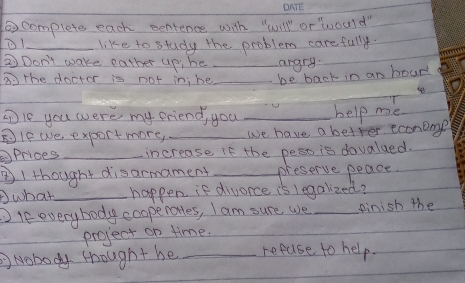 DATE
② Complete each sentence with "will" or "would"
① I ______ like to study the problem carefully.
② Don't wake father up, he ______ angry.
③ The doctor is not in; he ______ be back in an hour
④ If you were my friend, you ______ help me
⑤ If we export more, ______ we have a better economy?
⑥ Prices ______ increase if the peso is davalued.
⑦ I thought disarmament ______ preserve peace.
⑧ what ______ happen if divorce is legalized?
If everybody cooperates, I am sure we ______ finish the
project on time.
Nobody thought he ______ refuse to help.